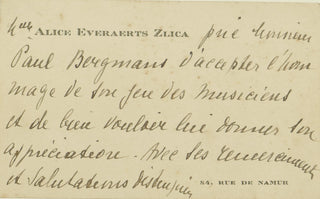 Mlle ALICE EVERAERTS ZLICA prie Monsieur
Paul Bergmans d'accepter l'hom
mage de son Jeu des Musiciens
et de bien vouloir lui donner son
appréciation. Avec ses remerciements
et salutations distinguées
84, RUE DE NAMUR